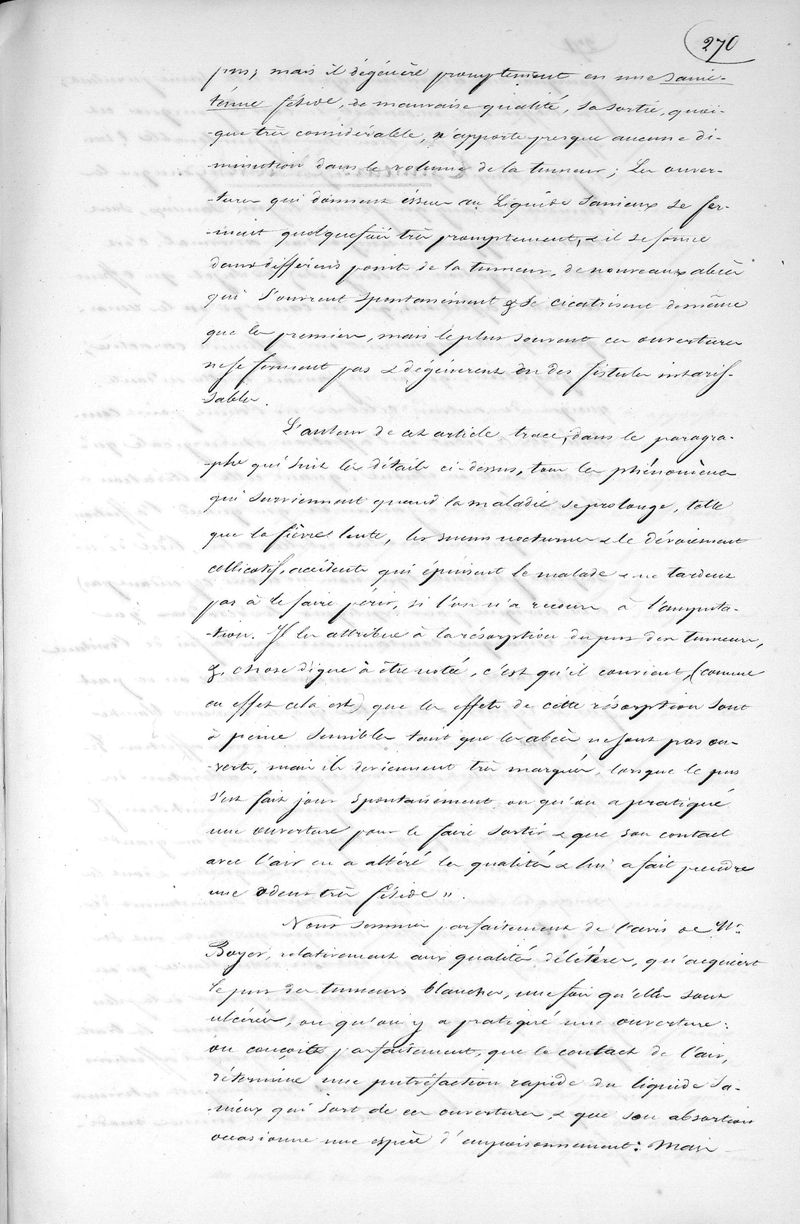 270
pus; mais il dégénère promptement en une sanie-
ténue fétide, de mauvaise qualité, sa sortie, quoi-
-que très considérable, n'apporte presque aucune di-
-minution dans le volume de la tumeur; Les ouver-
-tures qui donnent issue au Liquide Sanieux se fer-
-ment quelquefois très promptement, & il se forme
dans différens points de la tumeur, de nouveaux abcès
qui s'ouvrent spontanément & se cicatrisent de même
que les premiers, mais le plus souvent ces ouvertures
ne se ferment pas & dégénèrent en des fistules intaris-
-sables.
L'auteur de cet article trace, dans le paragra-
-phe qui suit les détails ci-dessus, tous les phénomènes
qui surviennent quand la maladie se prolonge, tels
que la fièvre lente, les sueurs nocturnes & le dévoiement
colliquatif, accidents qui épuisent le malade & ne tardent
pas à le faire périr, si l'on n'a recours à l'amputa-
-tion. Il les attribue à la résorption du pus des tumeurs,
&, chose digne à être notée, c'est qu'il convient, (comme
en effet cela est) que les effets de cette résorption sont
à peine sensibles tant que les abcès ne sont pas ou-
-verts, mais ils deviennent très marqués, lorsque le pus
s'est fait jour spontanément ou qu'on a pratiqué
une ouverture pour le faire sortir & que son contact
avec l'air en a altéré les qualités & lui a fait prendre
une odeur très fétide ".
Nous sommes parfaitement de l'avis de Mr.
Boyer, relativement aux qualités délétères, qu'acquiert
le pus des tumeurs blanches, une fois qu'elles sont
ulcérées, ou qu'on y a pratiqué une ouverture:
on conçoit parfaitement, que le contact de l'air,
détermine une putréfaction rapide du liquide sa-
-nieux qui sort de ces ouvertures, & que son absortion
occasionne une espèce d'empoisonnement: Mais